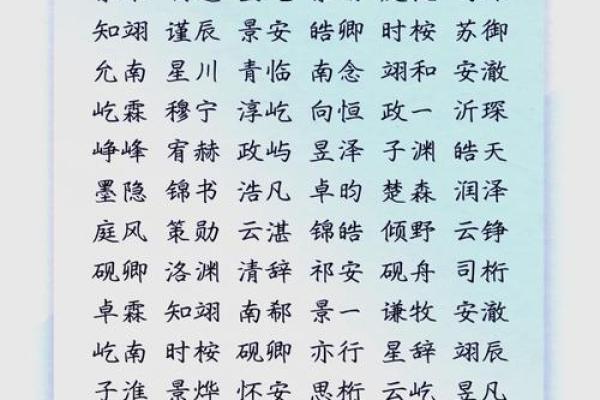 知翊 谨辰 景安 皓卿 时桉 苏御
允南 星川 青临 南念 翊和 安澈
屹霖 穆宁 淳屹 向恒 政一 沂琛
峥峰 宥赫 政屿 昱泽 子渊 皓天
墨隐 锦书 浩凡 卓昀 楚森 润泽
庭风 策勋 云湛 锦皓 倾野 云铮
砚卿 洛渊 清辞 祁安 砚舟 司桁
卓霖 知翊 南郗 景一 谦牧 安澈
屹南 时桉 砚卿 亦行 星辞 翊辰
子淮 景烨 怀安 思桁 云屹 昱凡